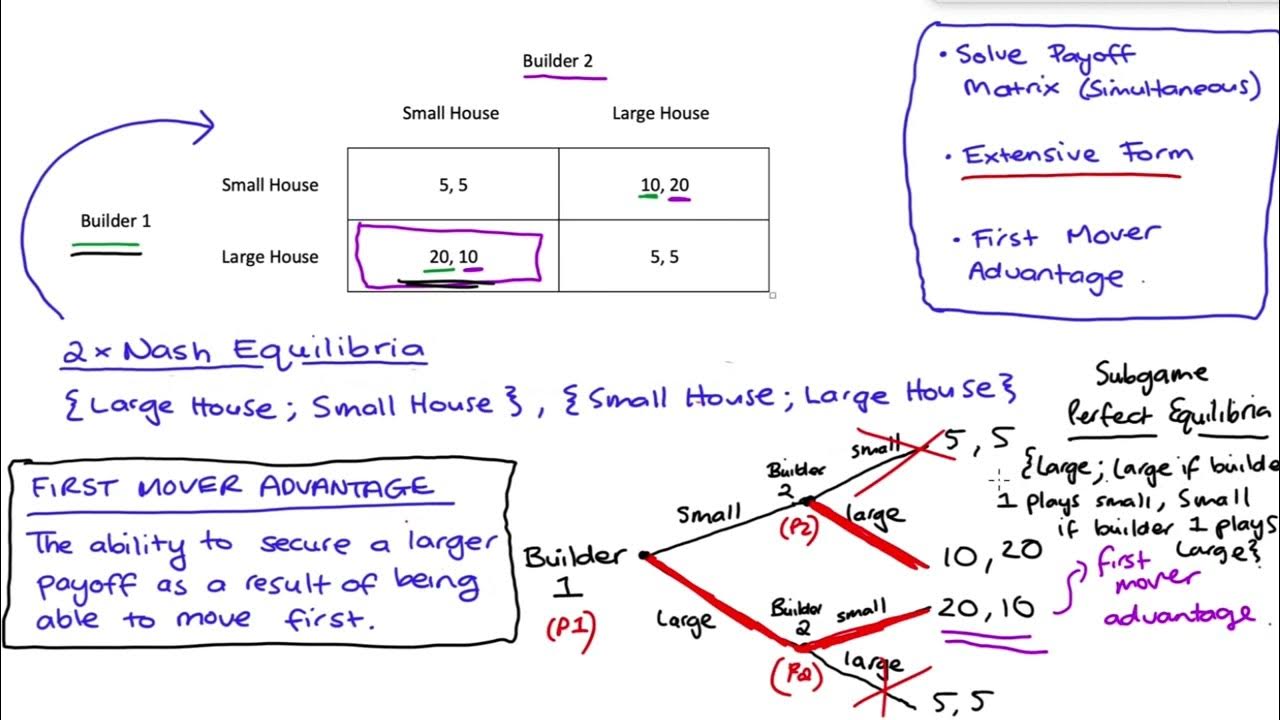 Builder 2
Small House
Large House
Small House
5, 5
10, 20
Builder 1
Large House
20, 10
5, 5
• Solve Payoff
Matrix (Simultaneous)
• Extensive Form
• First Mover
Advantage.
2x Nash Equilibria
{Large House; Small House}, {Small House; Large House}
FIRST MOVER ADVANTAGE
The ability to secure a larger
payoff as a result of being
able to move first.
Builder
1
(P1)
Small
Large
Builder
2
(P2)
small
large
Builder
2
(P2)
small
large
5, 5
10, 20
20, 10
5, 5
Subgame
Perfect Equilibria
{Large; Large if builde
1 plays small, Small
if builder 1 plays
Large}
first
mover
advantage.